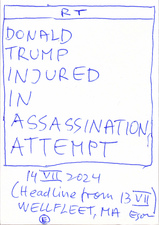 RT
DONALD
TRUMP
INJURED
IN
ASSASSINATION
ATTEMPT
14 VII 2024
(Headline from 13 VII)
WELLFLEET, MA
E